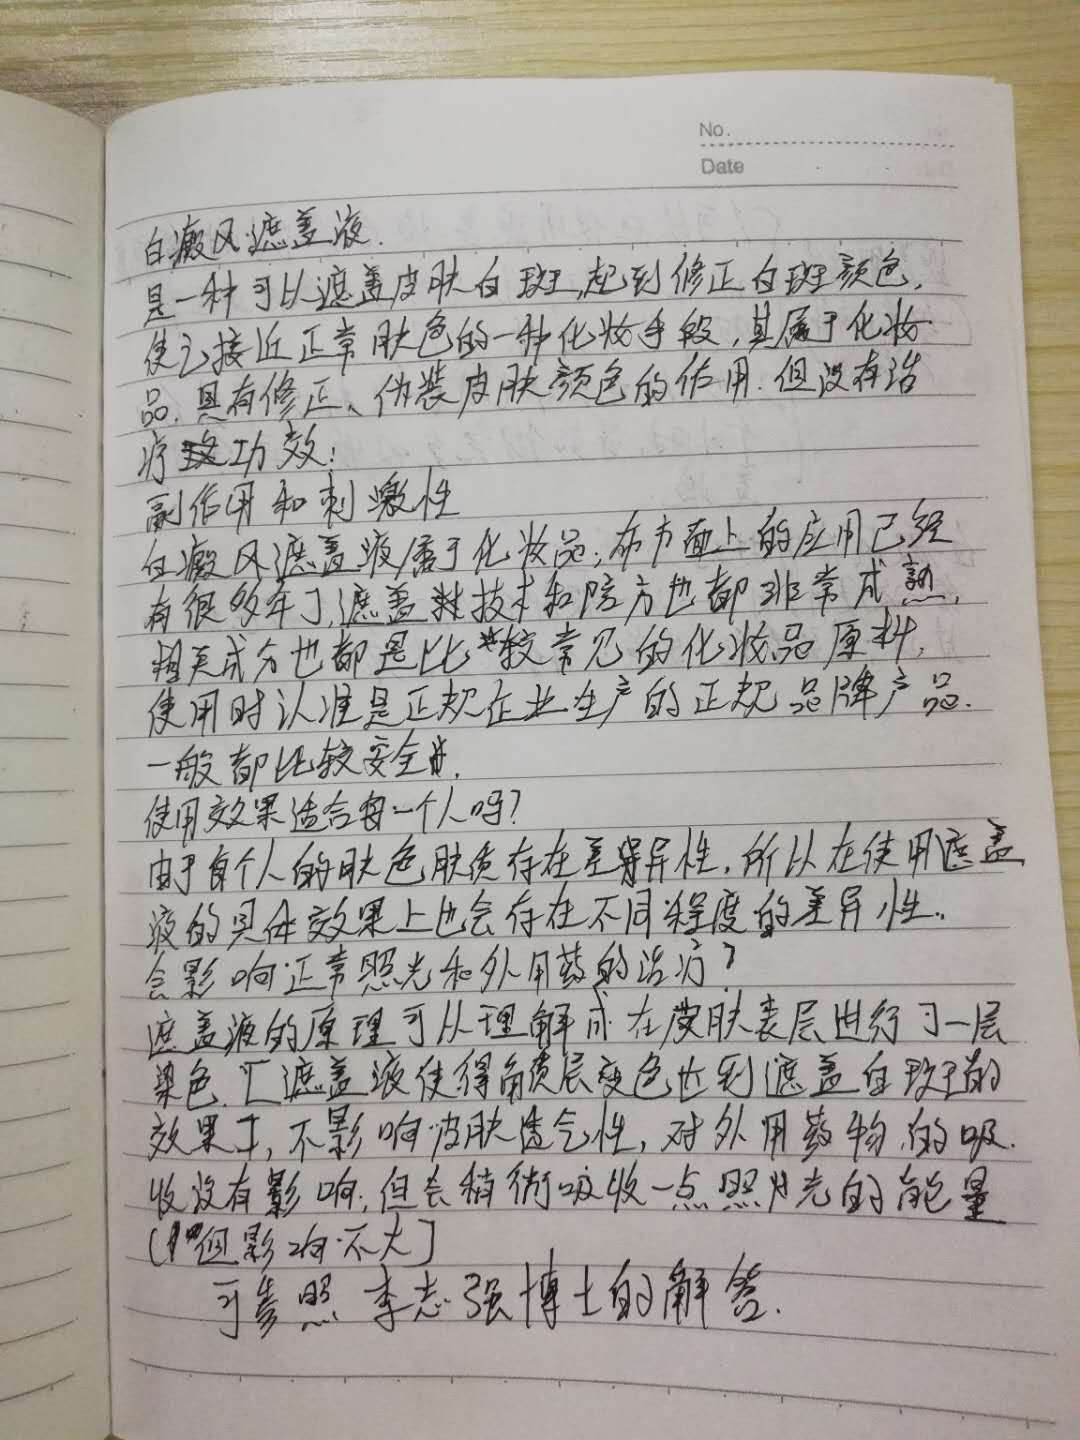 No.
Date
白癜风遮盖液.
是一种可以遮盖皮肤白斑,起到修正白斑颜色,
使之接近正常肤色的一种化妆手段,其属于化妆
品.具有修正、伪装皮肤颜色的作用.但没有治
疗功效;
副作用和刺激性
白癜风遮盖液属于化妆品,市面上的应用已经
有很多年了,遮盖技术和配方也都非常成熟,
相关成分也都是比较常见的化妆品原料,
使用时认准是正规企业生产的正规品牌产品.
一般都比较安全.
使用效果适合每一个人吗?
由于每个人的肤色肤质存在差异性,所以在使用遮盖
液的具体效果上也会存在不同程度的差异性.
会影响正常照光和外用药的治疗?
遮盖液的原理可以理解成在皮肤表层进行了一层
染色.[遮盖液使得角质层变色达到遮盖白斑的
效果],不影响皮肤透气性,对外用药物的吸
收没有影响,但会稍微吸收一点照光的能量
[但影响不大]
可参照李志强博士的解答.